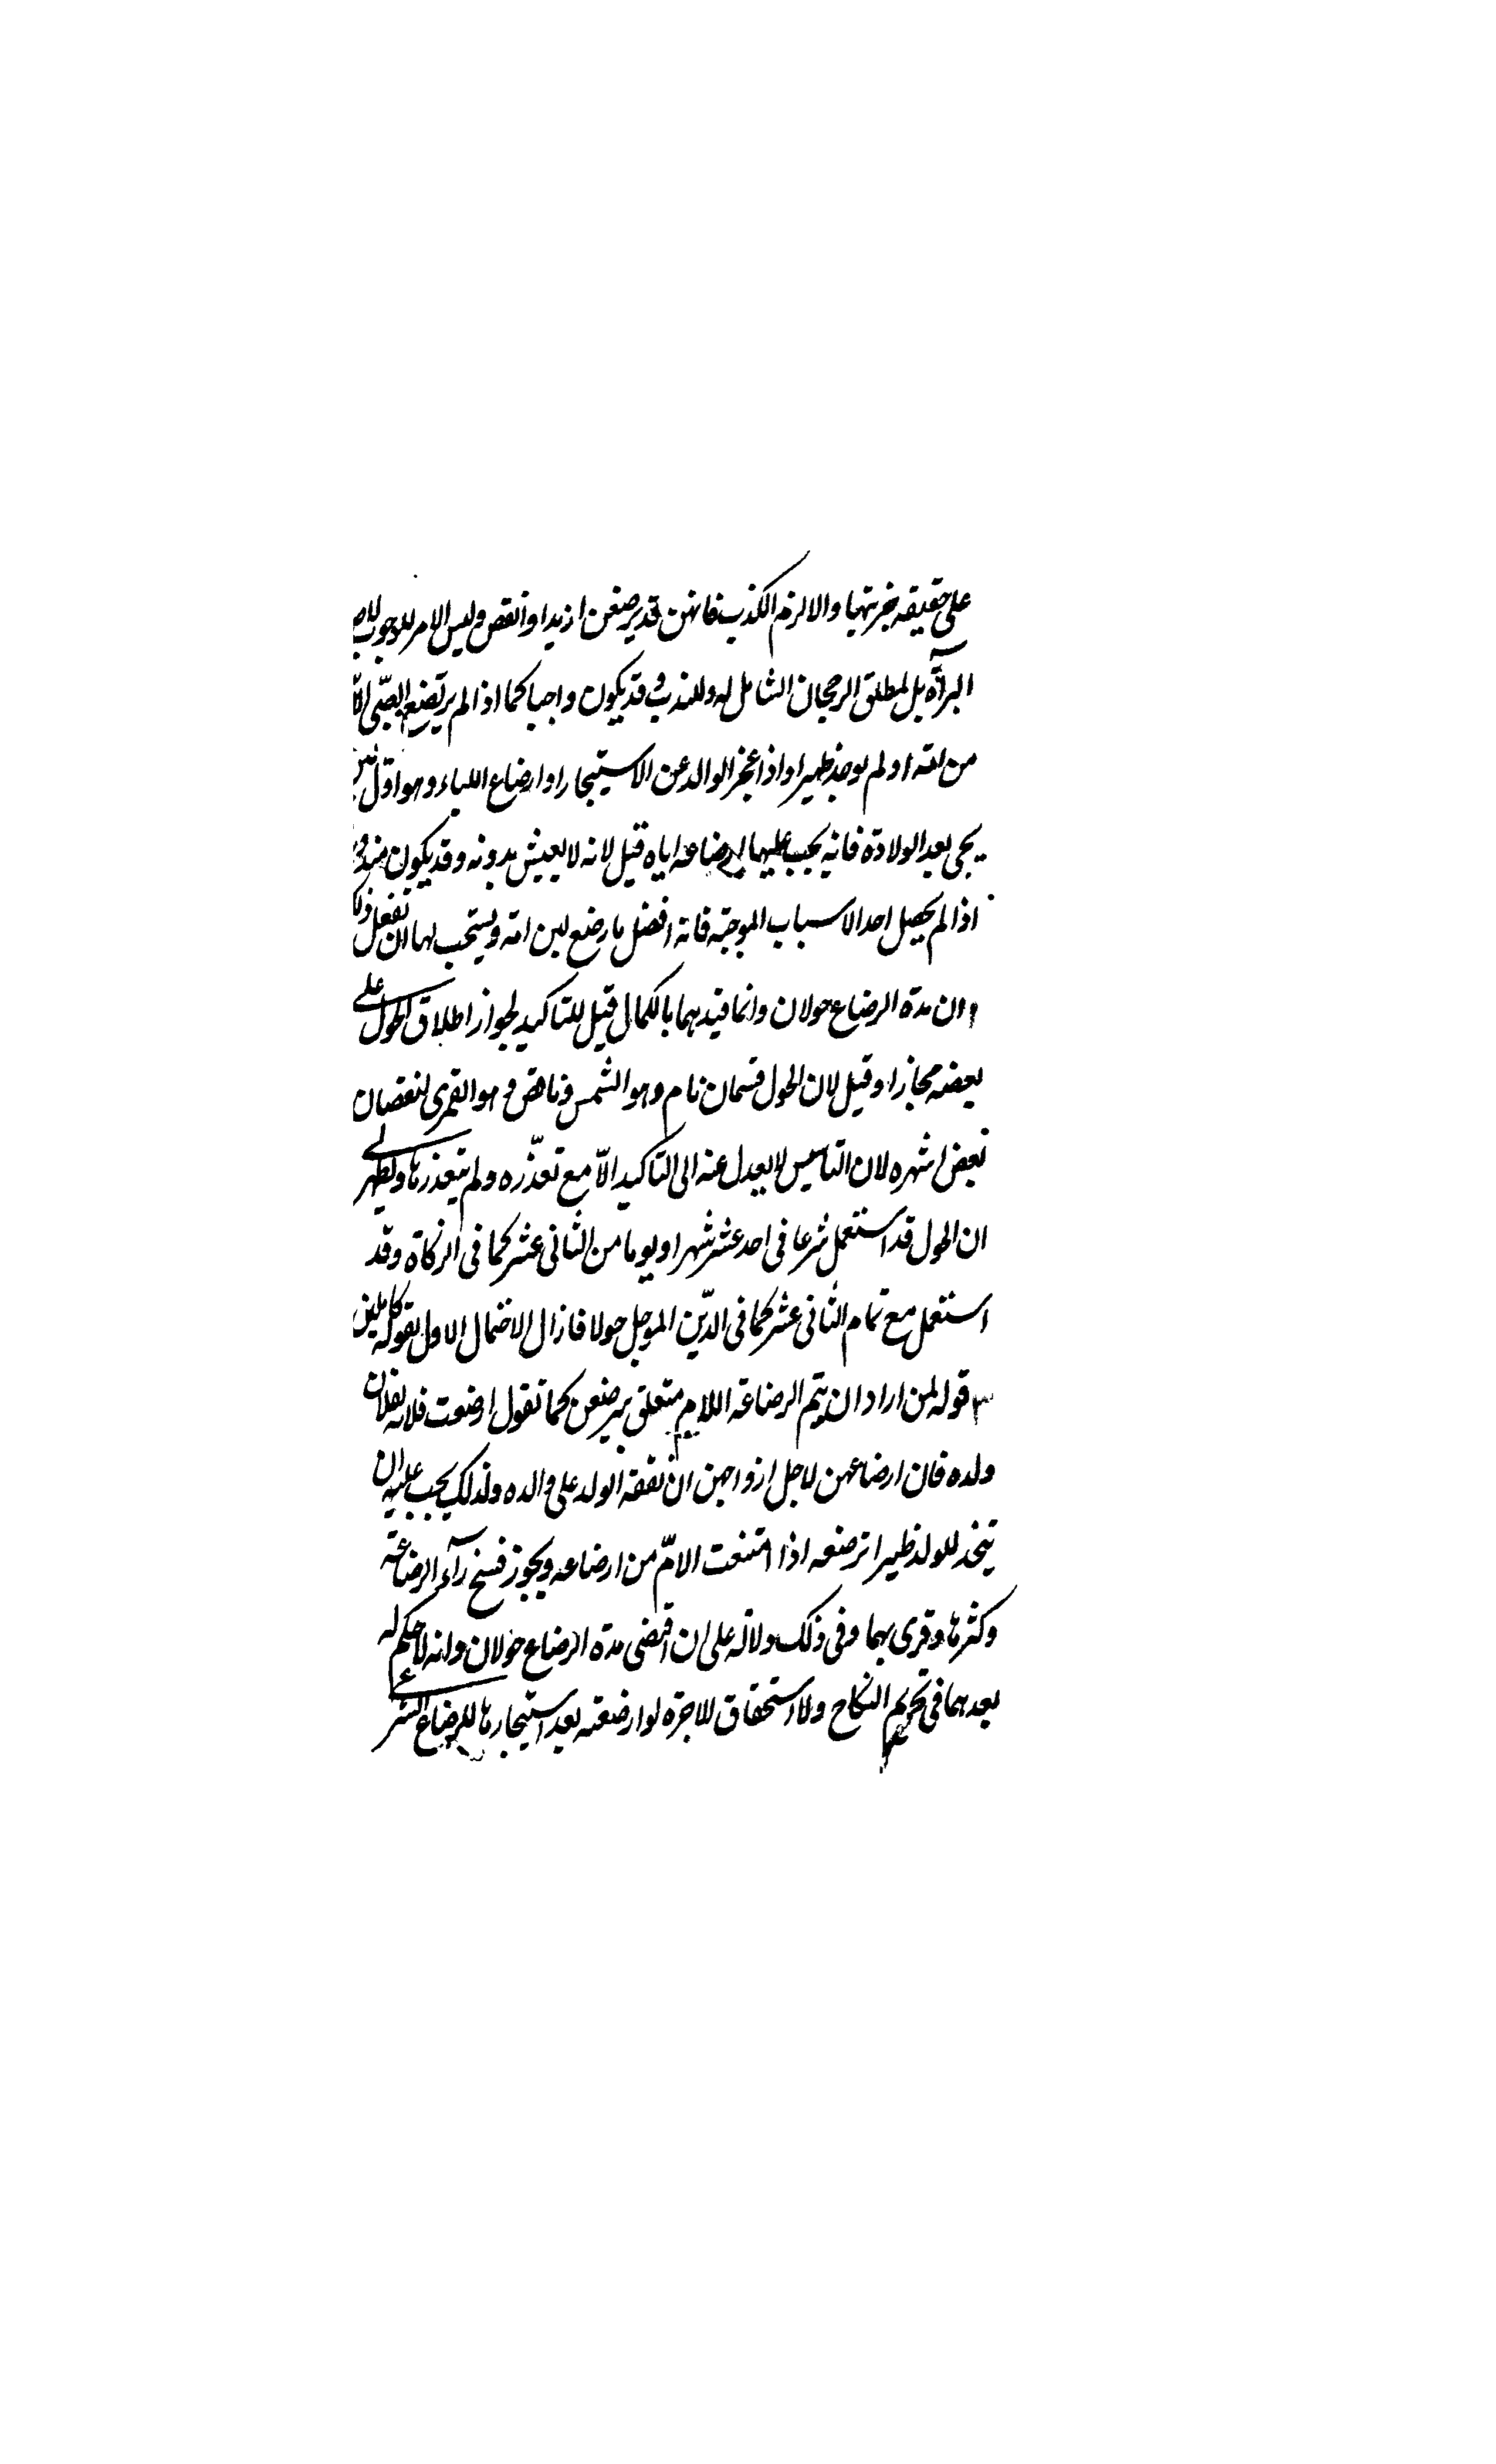 على حقيقه خبريتها والا لزم الكذب فانهن قد يرضعن ازيد او انقص وليس الامر للوجوب
البرآه بل لمطلق الرجحان الشامل له وللندب وقد يكون واجبا كما اذا لم يرتضع الصبّى الا
من امّه او لم يوجد ظير او اذا عجز الوالد عن الاستيجار او ارضاع اللباء وهو اوّل
يجى بعد الولادة فانه يجب عليها ارضاعه اياه قيل لانه لا يعيش بدونه وقد يكون
اذا لم يحصل احد الاسباب الموجبّه فانّه افضل ما رضع لبن امّه ويستحب لها ان تفعل
ان مدّة الرضاع حولان وانما قيّدهما بالكمال قيل للتاكيد لجواز اطلاق الحول على
بعضه مجازا وقيل لان الحول قسمان تام وهو الشمس وناقص وهو القمرى لنقصان
بعض اشهره لان التاسيس لا يعدل عنه الى التاكيد الاّ مع تعذّره ولم يتعذر هنا ويظهر لى
ان الحول قد استعمل شرعا فى احد عشر شهرا ويوما من الثانى عشر كما فى الزكاة وقد
استعمل مع تمام الثانى عشر كما فى الدّين الموجل حولا فازال الاحتمال الاول بقوله كاملين
٣ قوله لمن اراد ان يتم الرضاعة اللام متعلق بيرضعن كما تقول ارضعت فلانه لفلان
ولده فان ارضاعهن لاجل ازواجهن ان نفقة الولد على والده ولذلك يجب عليه ان
يتخذ للولد ظيرا ترضعه اذا امتنعت الامّ من ارضاعه ويجوز فتح رآء الرضاعة
وكثرها وقرى بهما وفى ذلك دلالة على ان اقصى مدة الرضاع حولان وانه لا حكم له
بعدهما فى تحريم النكاح ولا استحقاق للاجرة لو ارضعته بعد استيجارها للرضاع الشرعى